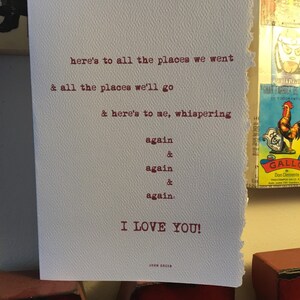 here's to all the places we went
& all the places we'll go
& here's to me, whispering
again
&
again
&
again.
I LOVE YOU!
GALLO